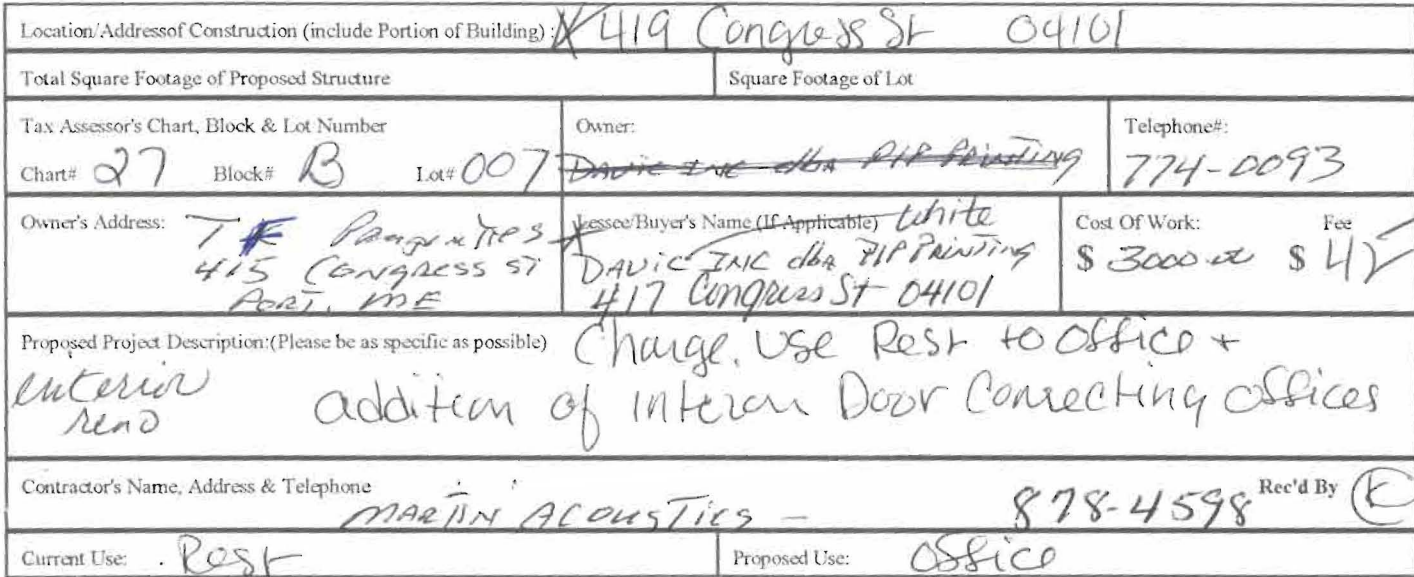 Location/Addressof Construction (include Portion of Building) : X 419 Congress St 04101
Total Square Footage of Proposed Structure Square Footage of Lot
Tax Assessor's Chart, Block & Lot Number
Chart# 27 Block# B Lot# 007
Owner:
DAVIC INC dba PIP PRINTING
Telephone#:
774-0093
Owner's Address:
415 CONGRESS ST
PORT. ME
Lessee/Buyer's Name (If Applicable) White
DAVIC INC dba PIP PRINTING
417 Congress St 04101
Cost Of Work: Fee
$ 3000.00 $ 42
Proposed Project Description:(Please be as specific as possible) Change Use Rest to Office +
interior
reno addition of Interior Door Connecting offices
Contractor's Name, Address & Telephone Rec'd By K
MARTIN ACOUSTICS - 878-4598
Current Use: Rest Proposed Use: Office